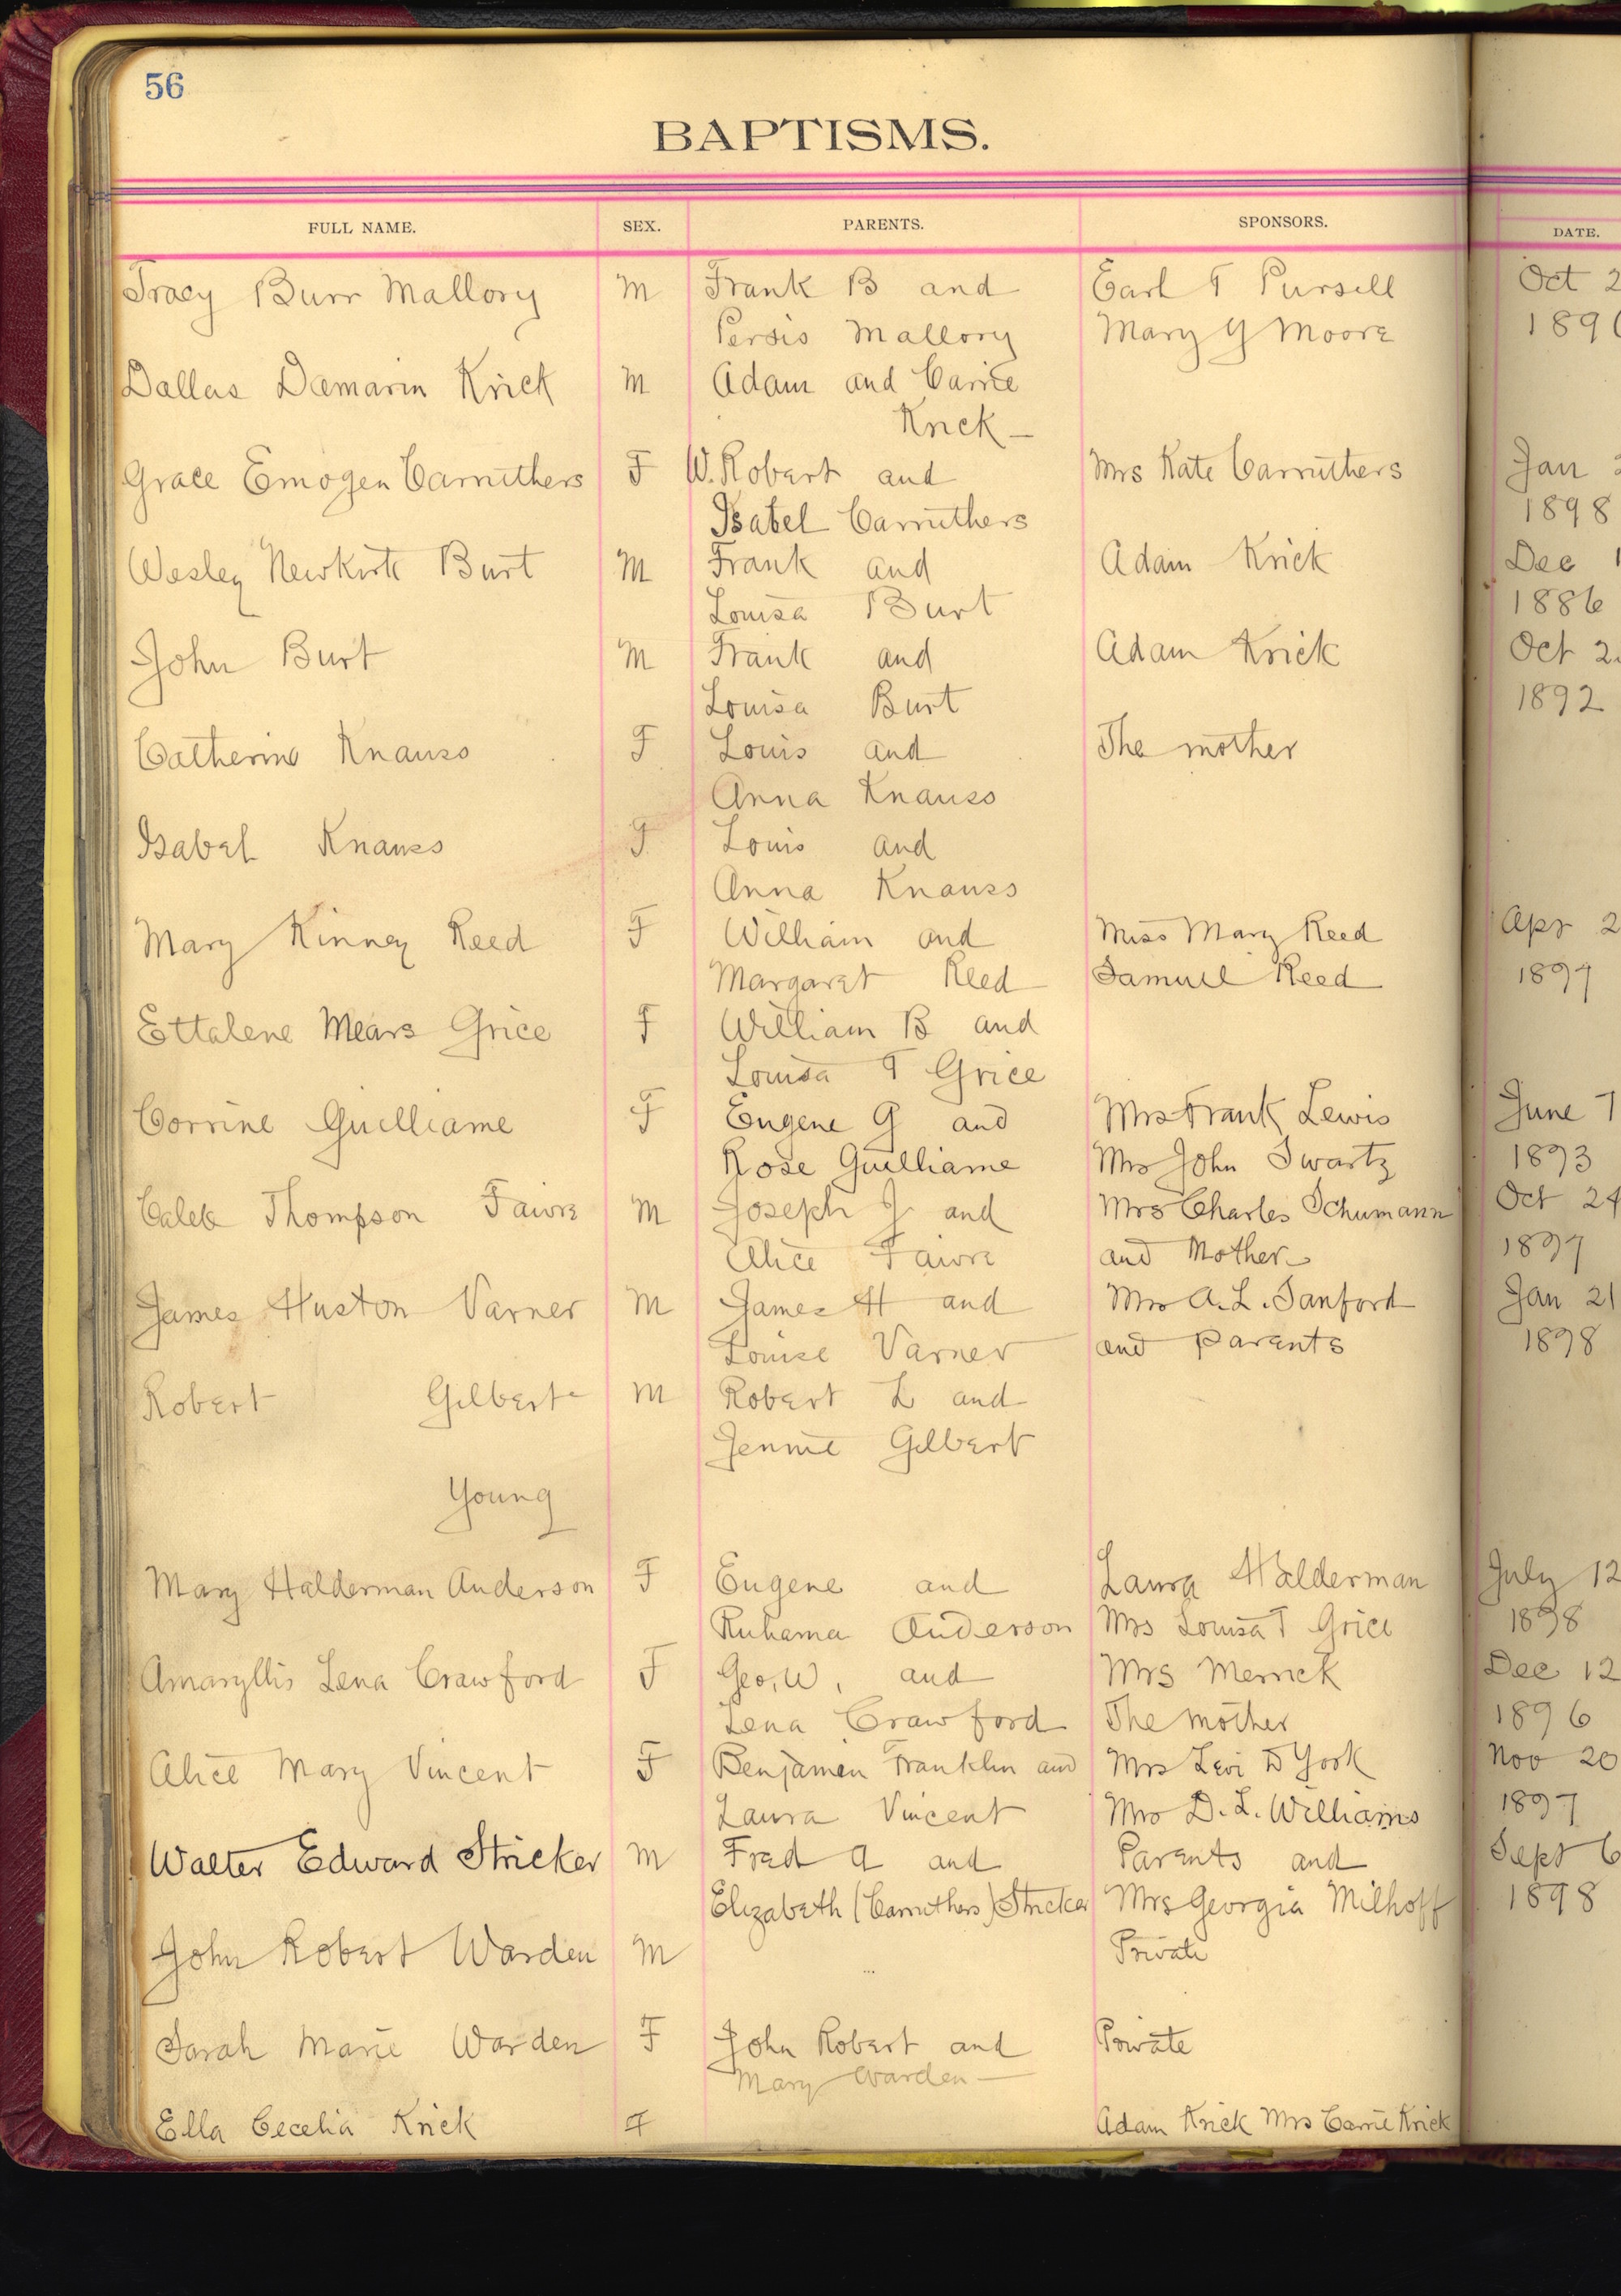 56
BAPTISMS.
FULL NAME. SEX. PARENTS. SPONSORS. DATE.
Tracy Burr Mallory M Frank B and Earl T Pursell Oct 2
Persis Mallory Mary G Moore 189
Dallas Damarin Krick M Adam and Carrie
Krick
Grace Emogen Carruthers F W. Robert and Mrs Kate Carruthers Jan
Isabel Carruthers 1898
Wesley Newkirk Burt M Frank and Adam Krick Dec 1
Louisa Burt 1886
John Burt M Frank and Adam Krick Oct 2
Louisa Burt 1892
Catherine Knauss F Louis and The mother
Anna Knauss
Isabel Knauss F Louis and
Anna Knauss
Mary Kinney Reed F William and Miss Mary Reed Apr 2
Margaret Reed Samuel Reed 1897
Ettalene Mears Grice F William B and
Louisa T Grice
Corrine Guilliame F Eugene G and Mrs Frank Lewis June 7
Rose Guilliame Mrs John Swartz 1893
Caleb Thompson Faivre M Joseph J and Mrs Charles Schumann Oct 24
Alice Faivre and Mother 1897
James Huston Varner M James H and Mrs A. L. Sanford Jan 21
Louise Varner and parents 1898
Robert Gilbert M Robert L and
Jennie Gilbert
Young
Mary Halderman Anderson F Eugene and Laura Halderman July 12
Ruhama Anderson Mrs Louisa T Grice 1898
Amaryllis Lena Crawford F Geo. W. and Mrs Merrick Dec 12
Lena Crawford The mother 1896
Alice Mary Vincent F Benjamin Franklin and Mrs Levi D York Nov 20
Laura Vincent Mrs D. L. Williams 1897
Walter Edward Stricker M Fred A and Parents and Sept 6
Elizabeth (Carruthers) Stricker Mrs Georgia Milhoff 1898
John Robert Warden M Private
Sarah Marie Warden F John Robert and Private
Mary Warden
Ella Cecelia Krick F Adam Krick Mrs Carrie Krick